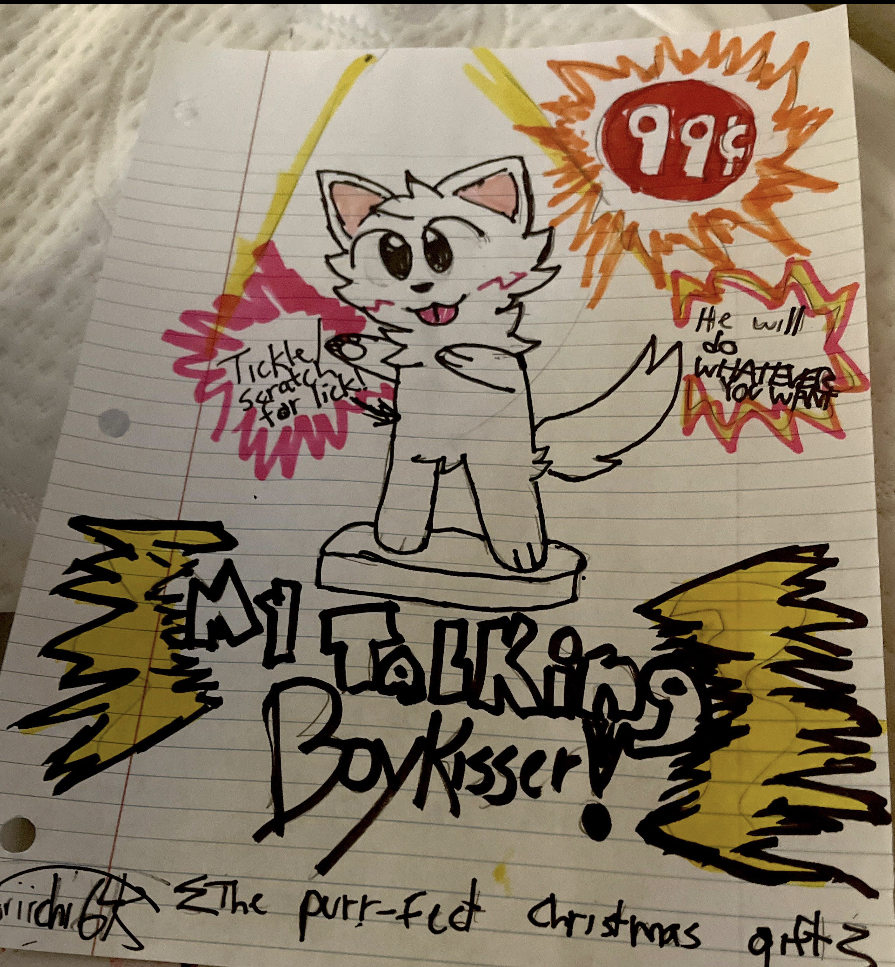 99¢
Tickle/
scratch
for lick!
He will
do
WHATEVER
YOU WANT
My TaLKing
BoyKisser!
riichi64
The purr-fect christmas gift